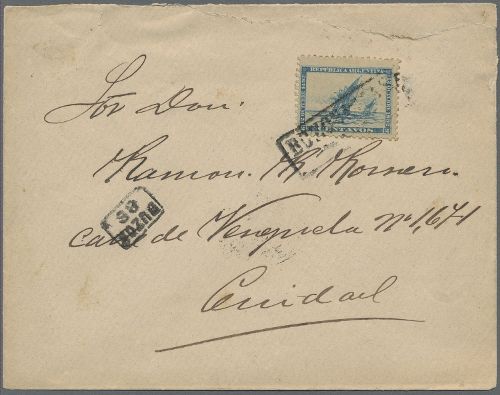 REPUBLICA ARGENTINA
CENTAVOS
BUZON
Sor Don:
Ramon K. Romero.
BUZON
86
calle de Venezuela No 1,671
Ciudad